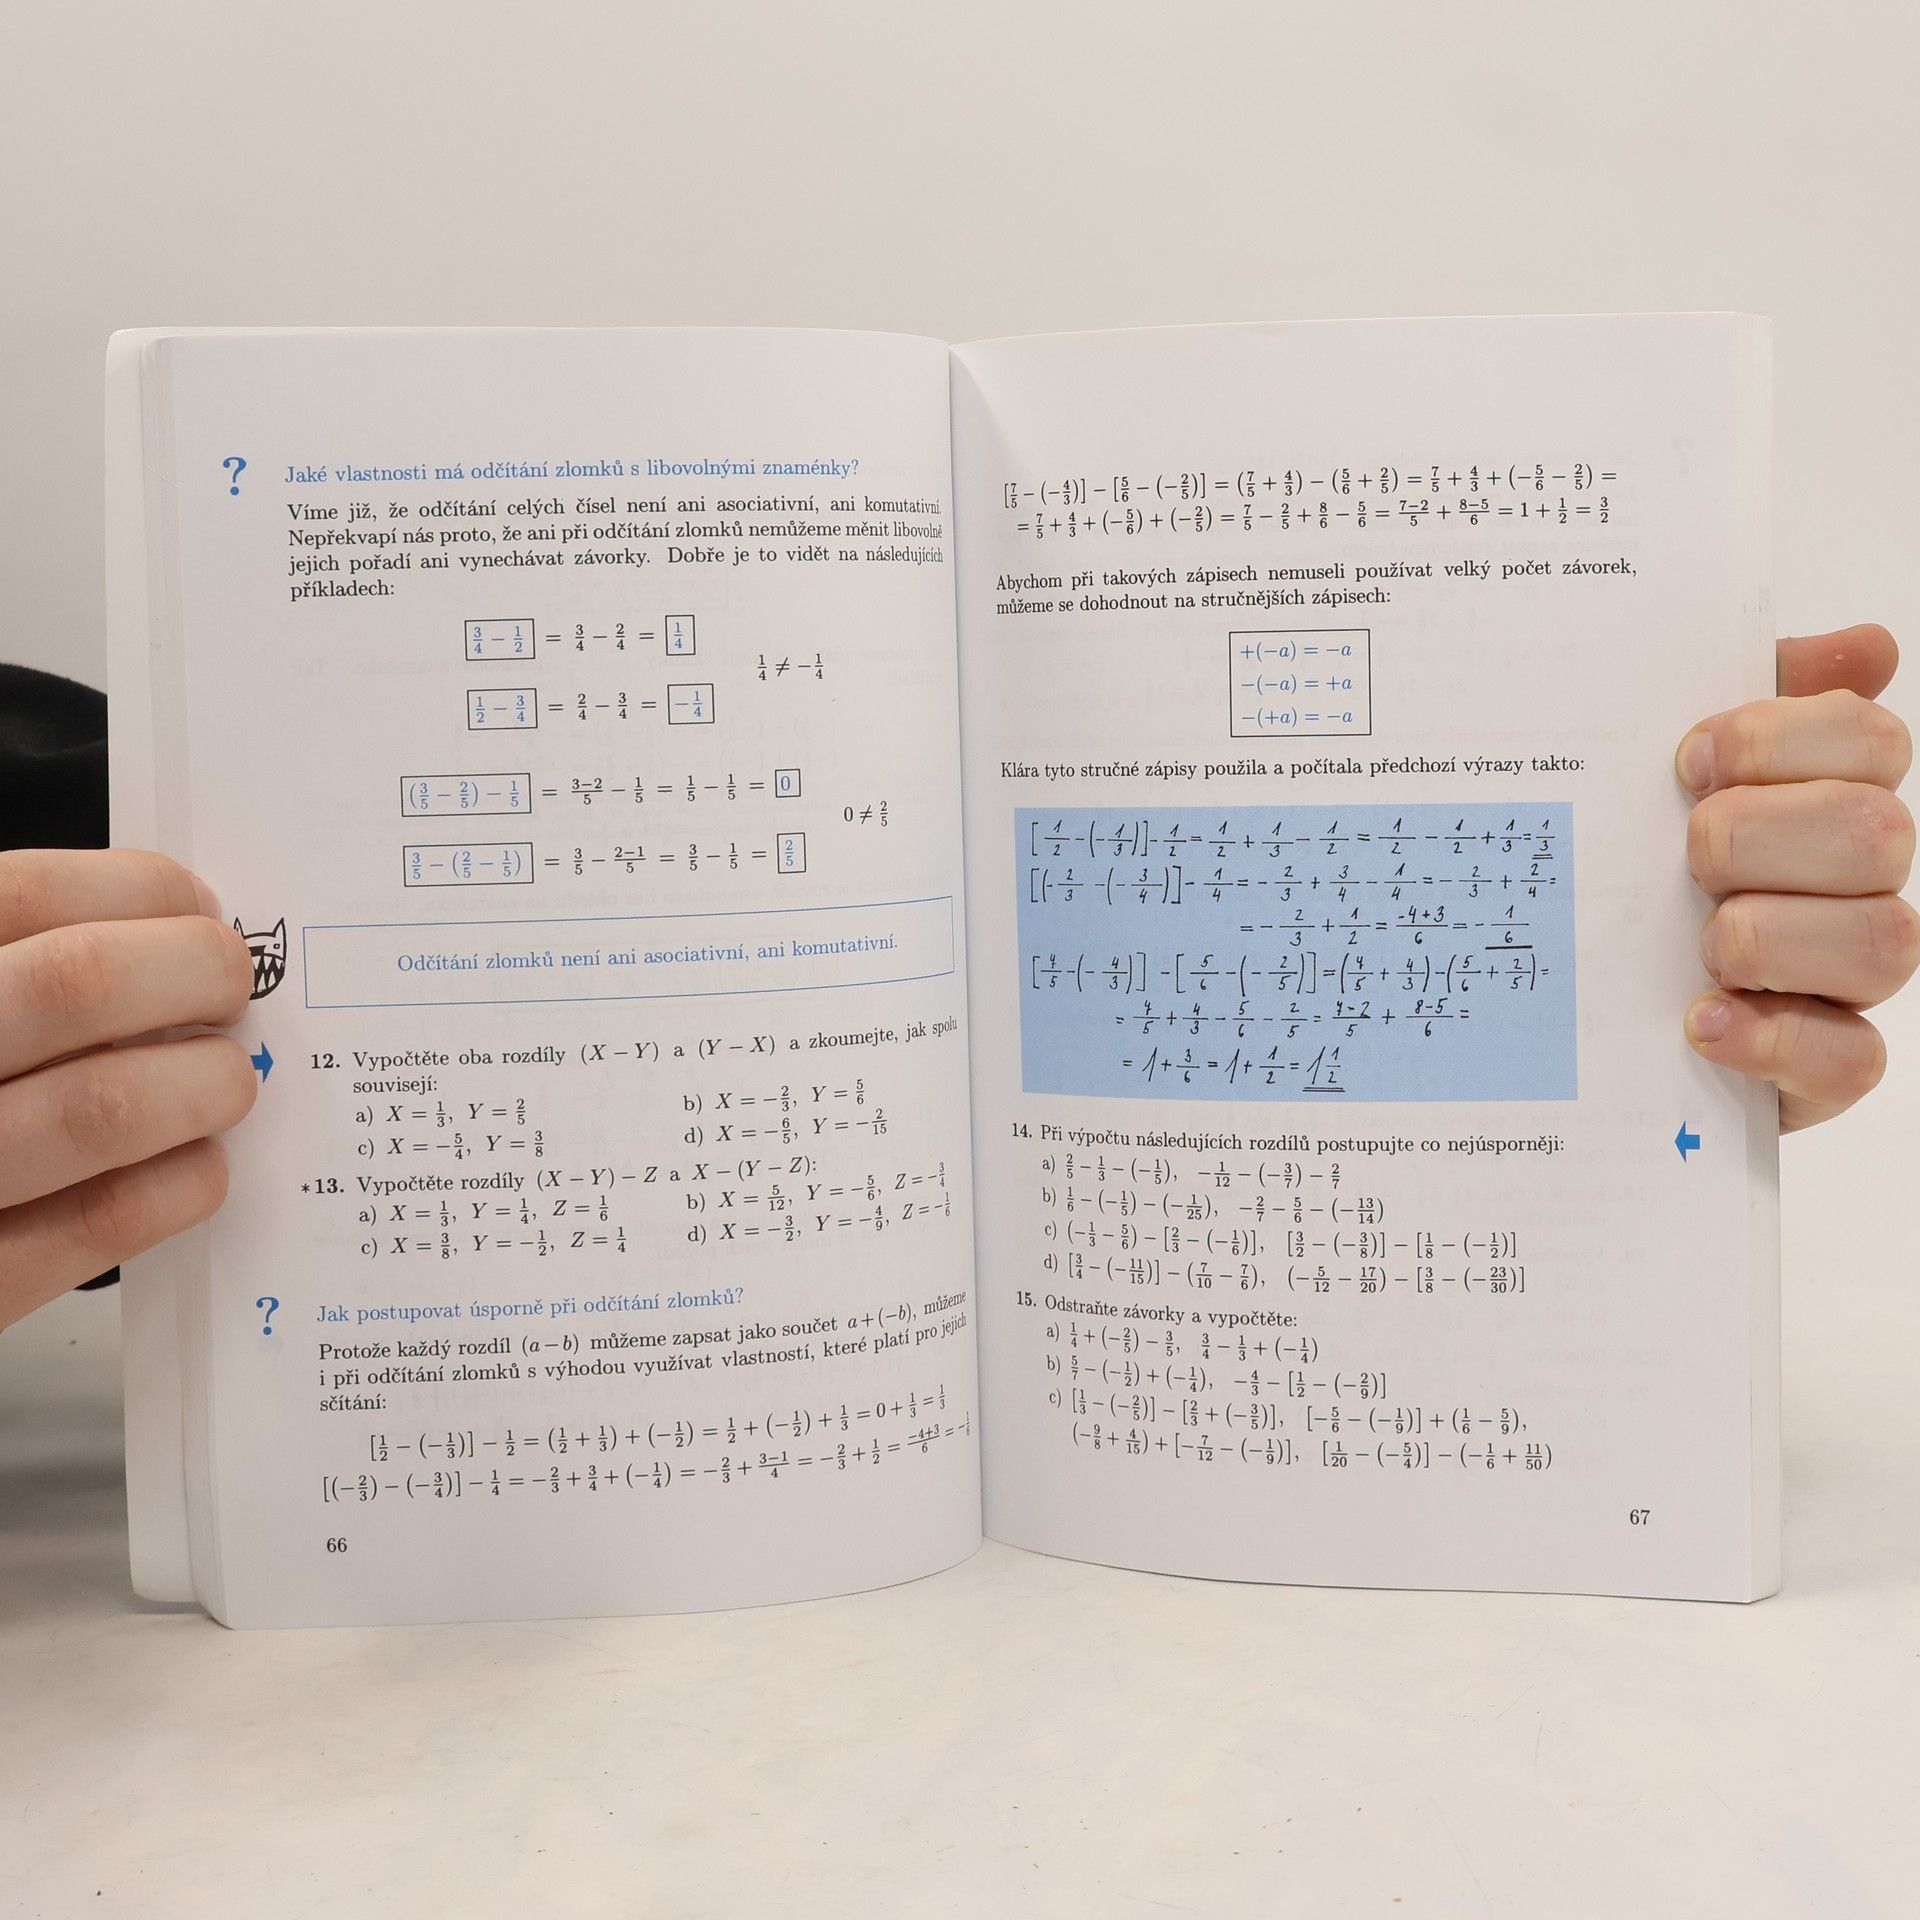 ? Jaké vlastnosti má odčítání zlomků s libovolnými znaménky?
Víme již, že odčítání celých čísel není ani asociativní, ani komutativní.
Nepřekvapí nás proto, že ani při odčítání zlomků nemůžeme měnit libovolně
jejich pořadí ani vynechávat závorky. Dobře je to vidět na následujících
příkladech:
3/4 − 1/2 = 3/4 − 2/4 = 1/4
1/4 ≠ −1/4
1/2 − 3/4 = 2/4 − 3/4 = −1/4
(3/5 − 2/5) − 1/5 = 3−2/5 − 1/5 = 1/5 − 1/5 = 0
0 ≠ 2/5
3/5 − (2/5 − 1/5) = 3/5 − 2−1/5 = 3/5 − 1/5 = 2/5
Odčítání zlomků není ani asociativní, ani komutativní.
12. Vypočtěte oba rozdíly (X − Y) a (Y − X) a zkoumejte, jak spolu
souvisejí:
a) X = 1/3, Y = 2/5 b) X = −2/3, Y = 5/6
c) X = −5/4, Y = 3/8 d) X = −6/5, Y = −2/15
*13. Vypočtěte rozdíly (X − Y) − Z a X − (Y − Z):
a) X = 1/3, Y = 1/4, Z = 1/6 b) X = 5/12, Y = −5/6, Z = −3/4
c) X = 3/8, Y = −1/2, Z = 1/4 d) X = −3/2, Y = −4/9, Z = −1/6
? Jak postupovat úsporně při odčítání zlomků?
Protože každý rozdíl (a − b) můžeme zapsat jako součet a + (−b), můžeme
i při odčítání zlomků s výhodou využívat vlastností, které platí pro jejich
sčítání:
[1/2 − (−1/3)] − 1/2 = (1/2 + 1/3) + (−1/2) = 1/2 + (−1/2) + 1/3 = 0 + 1/3 = 1/3
[(−2/3) − (−3/4)] − 1/4 = −2/3 + 3/4 + (−1/4) = −2/3 + 3−1/4 = −2/3 + 1/2 = −4+3/6 = −1/6
66
[7/5 − (−4/3)] − [5/6 − (−2/5)] = (7/5 + 4/3) − (5/6 + 2/5) = 7/5 + 4/3 + (−5/6 − 2/5) =
= 7/5 + 4/3 + (−5/6) + (−2/5) = 7/5 − 2/5 + 8/6 − 5/6 = 7−2/5 + 8−5/6 = 1 + 1/2 = 3/2
Abychom při takových zápisech nemuseli používat velký počet závorek,
můžeme se dohodnout na stručnějších zápisech:
+(−a) = −a
−(−a) = +a
−(+a) = −a
Klára tyto stručné zápisy použila a počítala předchozí výrazy takto:
[1/2 − (−1/3)] − 1/2 = 1/2 + 1/3 − 1/2 = 1/2 − 1/2 + 1/3 = 1/3
[(−2/3 − (−3/4)] − 1/4 = −2/3 + 3/4 − 1/4 = −2/3 + 2/4 =
= −2/3 + 1/2 = −4+3/6 = −1/6
[7/5 − (−4/3)] − [5/6 − (−2/5)] = (7/5 + 4/3) − (5/6 + 2/5) =
= 7/5 + 4/3 − 5/6 − 2/5 = 7−2/5 + 8−5/6 =
= 1 + 3/6 = 1 + 1/2 = 1 1/2
14. Při výpočtu následujících rozdílů postupujte co nejúsporněji:
a) 2/5 − 1/3 − (−1/5), −1/12 − (−3/7) − 2/7
b) 1/6 − (−1/5) − (−1/25), −2/7 − 5/6 − (−13/14)
c) (−1/3 − 5/6) − [2/3 − (−1/6)], [3/2 − (−3/8)] − [1/8 − (−1/2)]
d) [3/4 − (−11/15)] − (7/10 − 7/6), (−5/12 − 17/20) − [3/8 − (−23/30)]
15. Odstraňte závorky a vypočtěte:
a) 1/4 + (−2/5) − 3/5, 3/4 − 1/3 + (−1/4)
b) 5/7 − (−1/2) + (−1/4), −4/3 − [1/2 − (−2/9)]
c) [1/3 − (−2/5)] − [2/3 + (−3/5)], [−5/6 − (−1/9)] + (1/6 − 5/9),
(−9/8 + 4/15) + [−7/12 − (−1/9)], [1/20 − (−5/4)] − (−1/6 + 11/50)
67